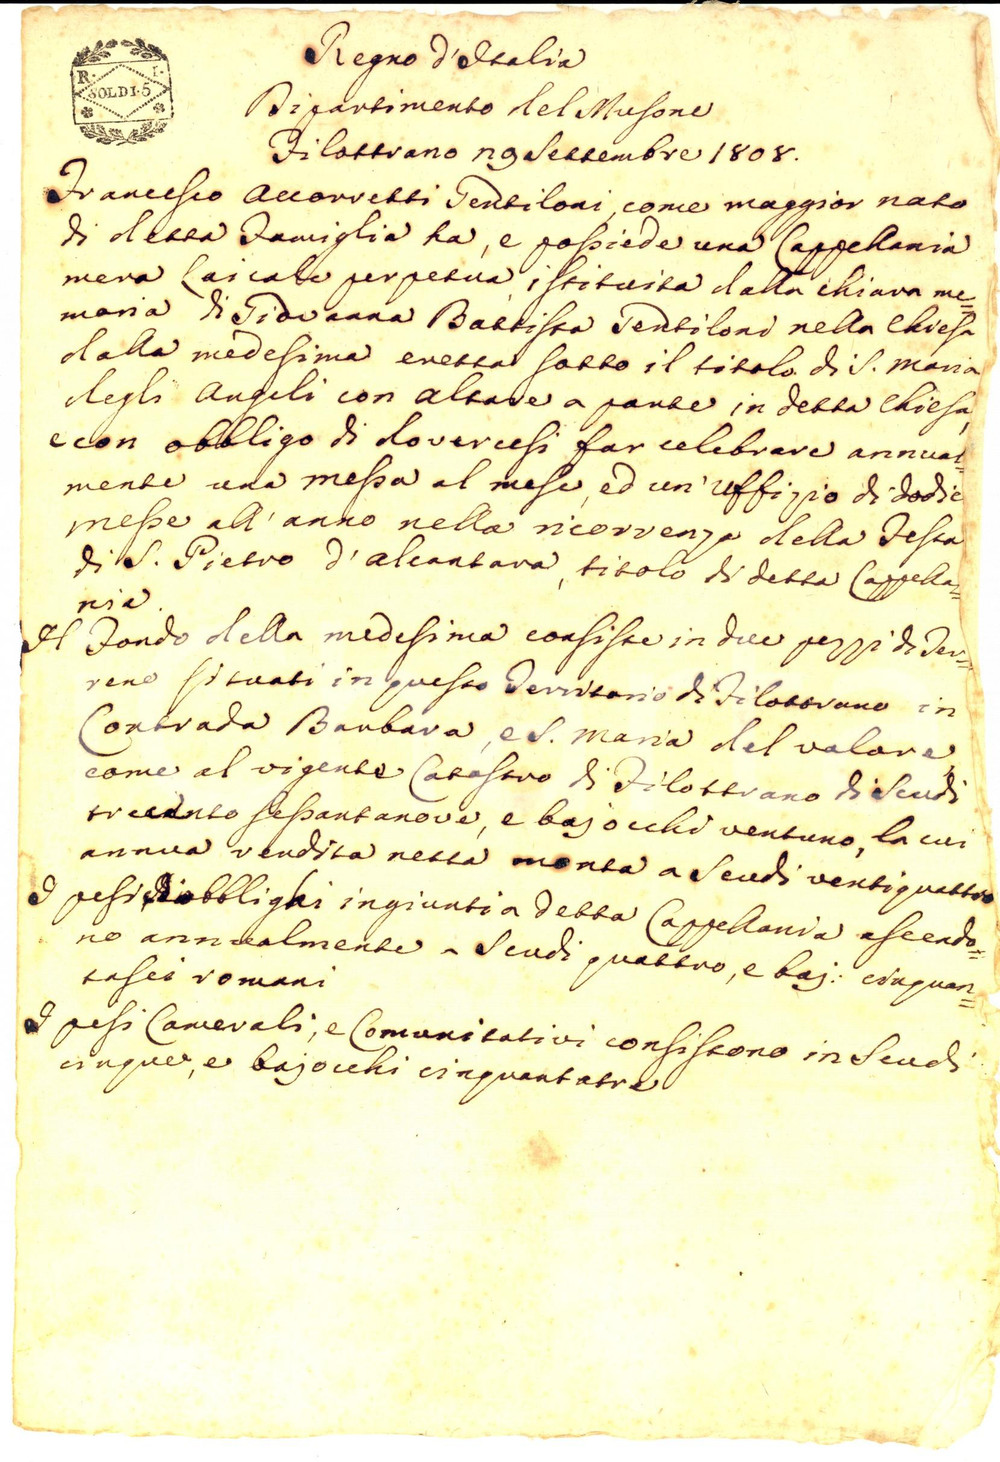 Regno d'Italia
R. I.
SOLDI.5
Dipartimento del Musone
Filottrano 29 Settembre 1808.
Francesco Accorretti Gentiloni, come maggior nato
di detta Famiglia ha, e possiede una Cappellania
mera Laicale perpetua, istituita dalla chiara me=
moria di Giovanna Battista Gentiloni nella Chiesa
dalla medesima eretta sotto il titolo di S. Maria
degli Angeli con Altare a parte in detta Chiesa,
e con obbligo di dovercisi far celebrare annual=
mente una messa al mese, ed un'Uffizio di dodic
messe all'anno nella ricorrenza della Festa
di S. Pietro d'Alcantara, titolo di detta Cappella=
nia.
Il Fondo della medesima consiste in due pezzi di Ter=
reno situati in questo Territorio di Filottrano in
Contrada Barbara, e S. Maria del valore,
come al vigente Catastro di Filottrano di Scudi
trecento sessantanove, e bajocchi ventuno, la cui
annua rendita netta monta a Scudi ventiquattro
I pesi di obblighi ingiunti a detta Cappellania ascendo=
no annualmente a Scudi quattro, e baj: cinquan=
tasei romani
I pesi Camerali, e Comunitativi consistono in Scudi
cinque, e bajocchi cinquantatre